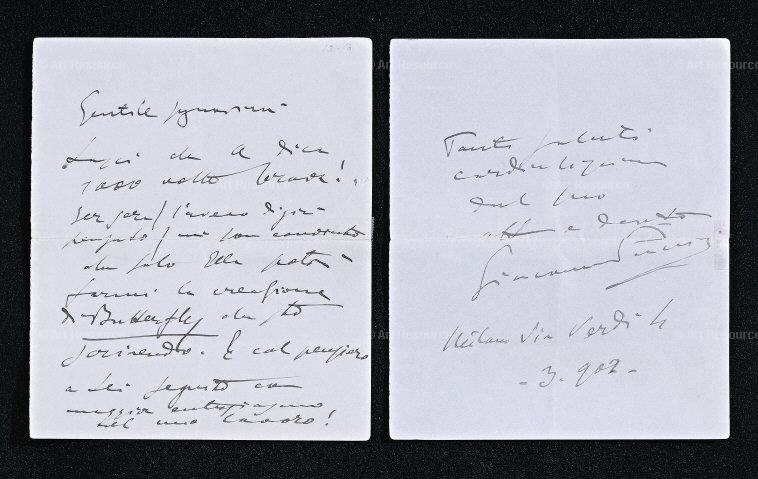 Gentile
da dica
1000 volte brava!
Ier sera l'avevo di già
pensato e mi son convinto
che solo Ella potrà
farmi la creazione
di Butterfly che sto
scrivendo. E col pensiero
a Lei seguito con
maggior entusiasmo
nel mio lavoro!
Tanti saluti
cordialissimi
dal suo
e devoto
Giacomo Puccini
Milano Via Verdi 4
- 3. 902 -
© Art Resource